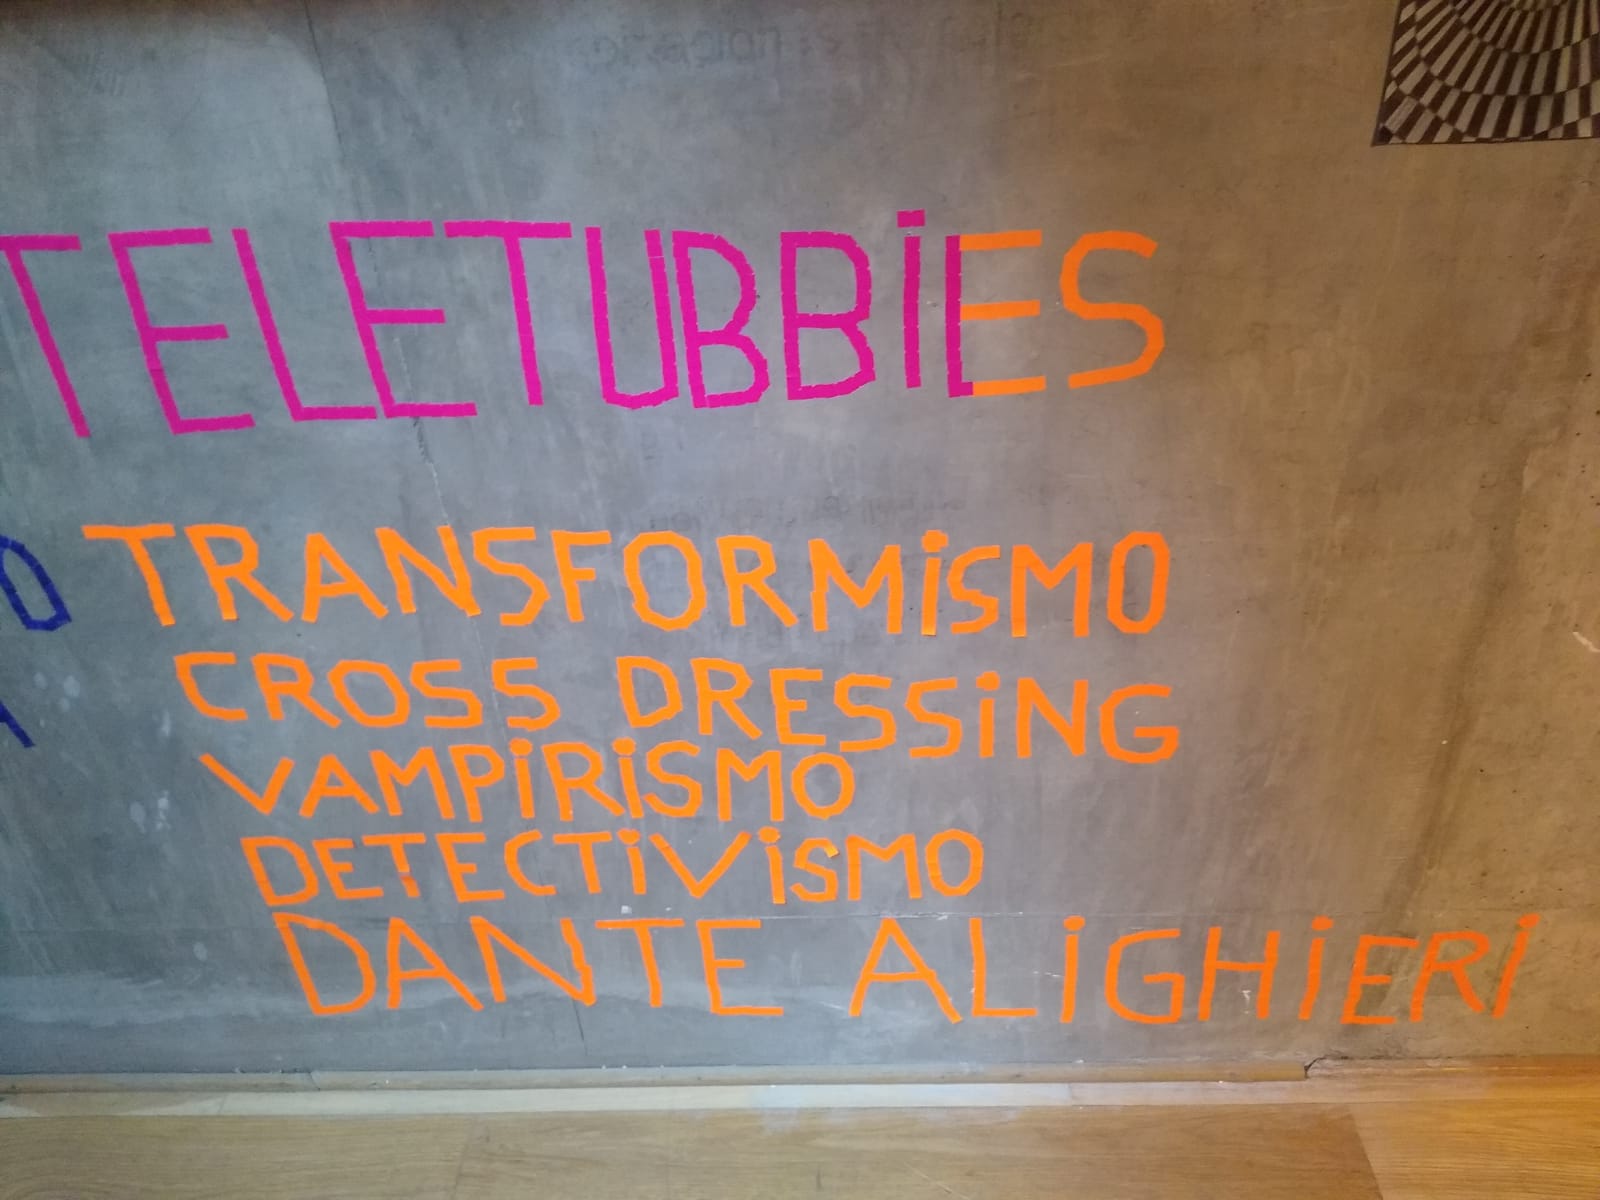 TELETUBBiES
TRANSFORMiSMO
CROSS DRESSiNG
VAMPiRiSMO
DETECTiViSMO
DANTE ALiGHiERi